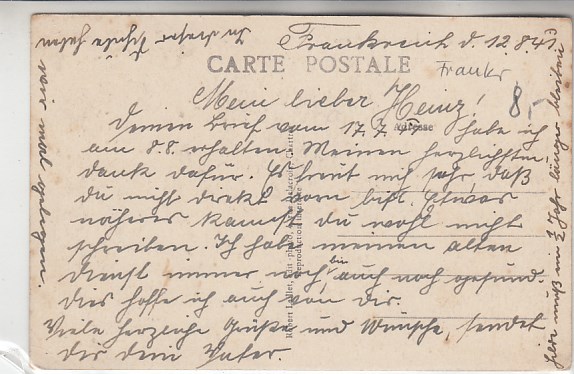 Frankreich d. 12.8.41.
CARTE POSTALE
Frankr
8,-
Mein lieber Heinz!
Adresse
Deinen Brief vom 17.7. habe ich
am 8.8. erhalten. Meinen herzlichsten
dank dafür. Es freut mich sehr, daß
du nicht direkt vorn bist. Etwas
näheres kannst du wohl nicht
schreiben. Ich habe meinen alten
dienst immer noch, bin auch noch gesund.
dies hoffe ich auch von dir.
Viele herzliche Grüße und Wünsche, sendet
dir dein Vater.
In dieser haben
wir mal gelegen.
muß im ½ Jahr länger bleiben